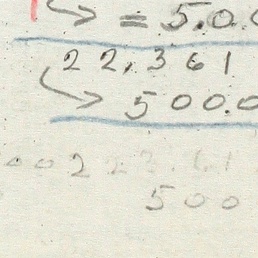 = 5.00
22,361
500.0
002
500